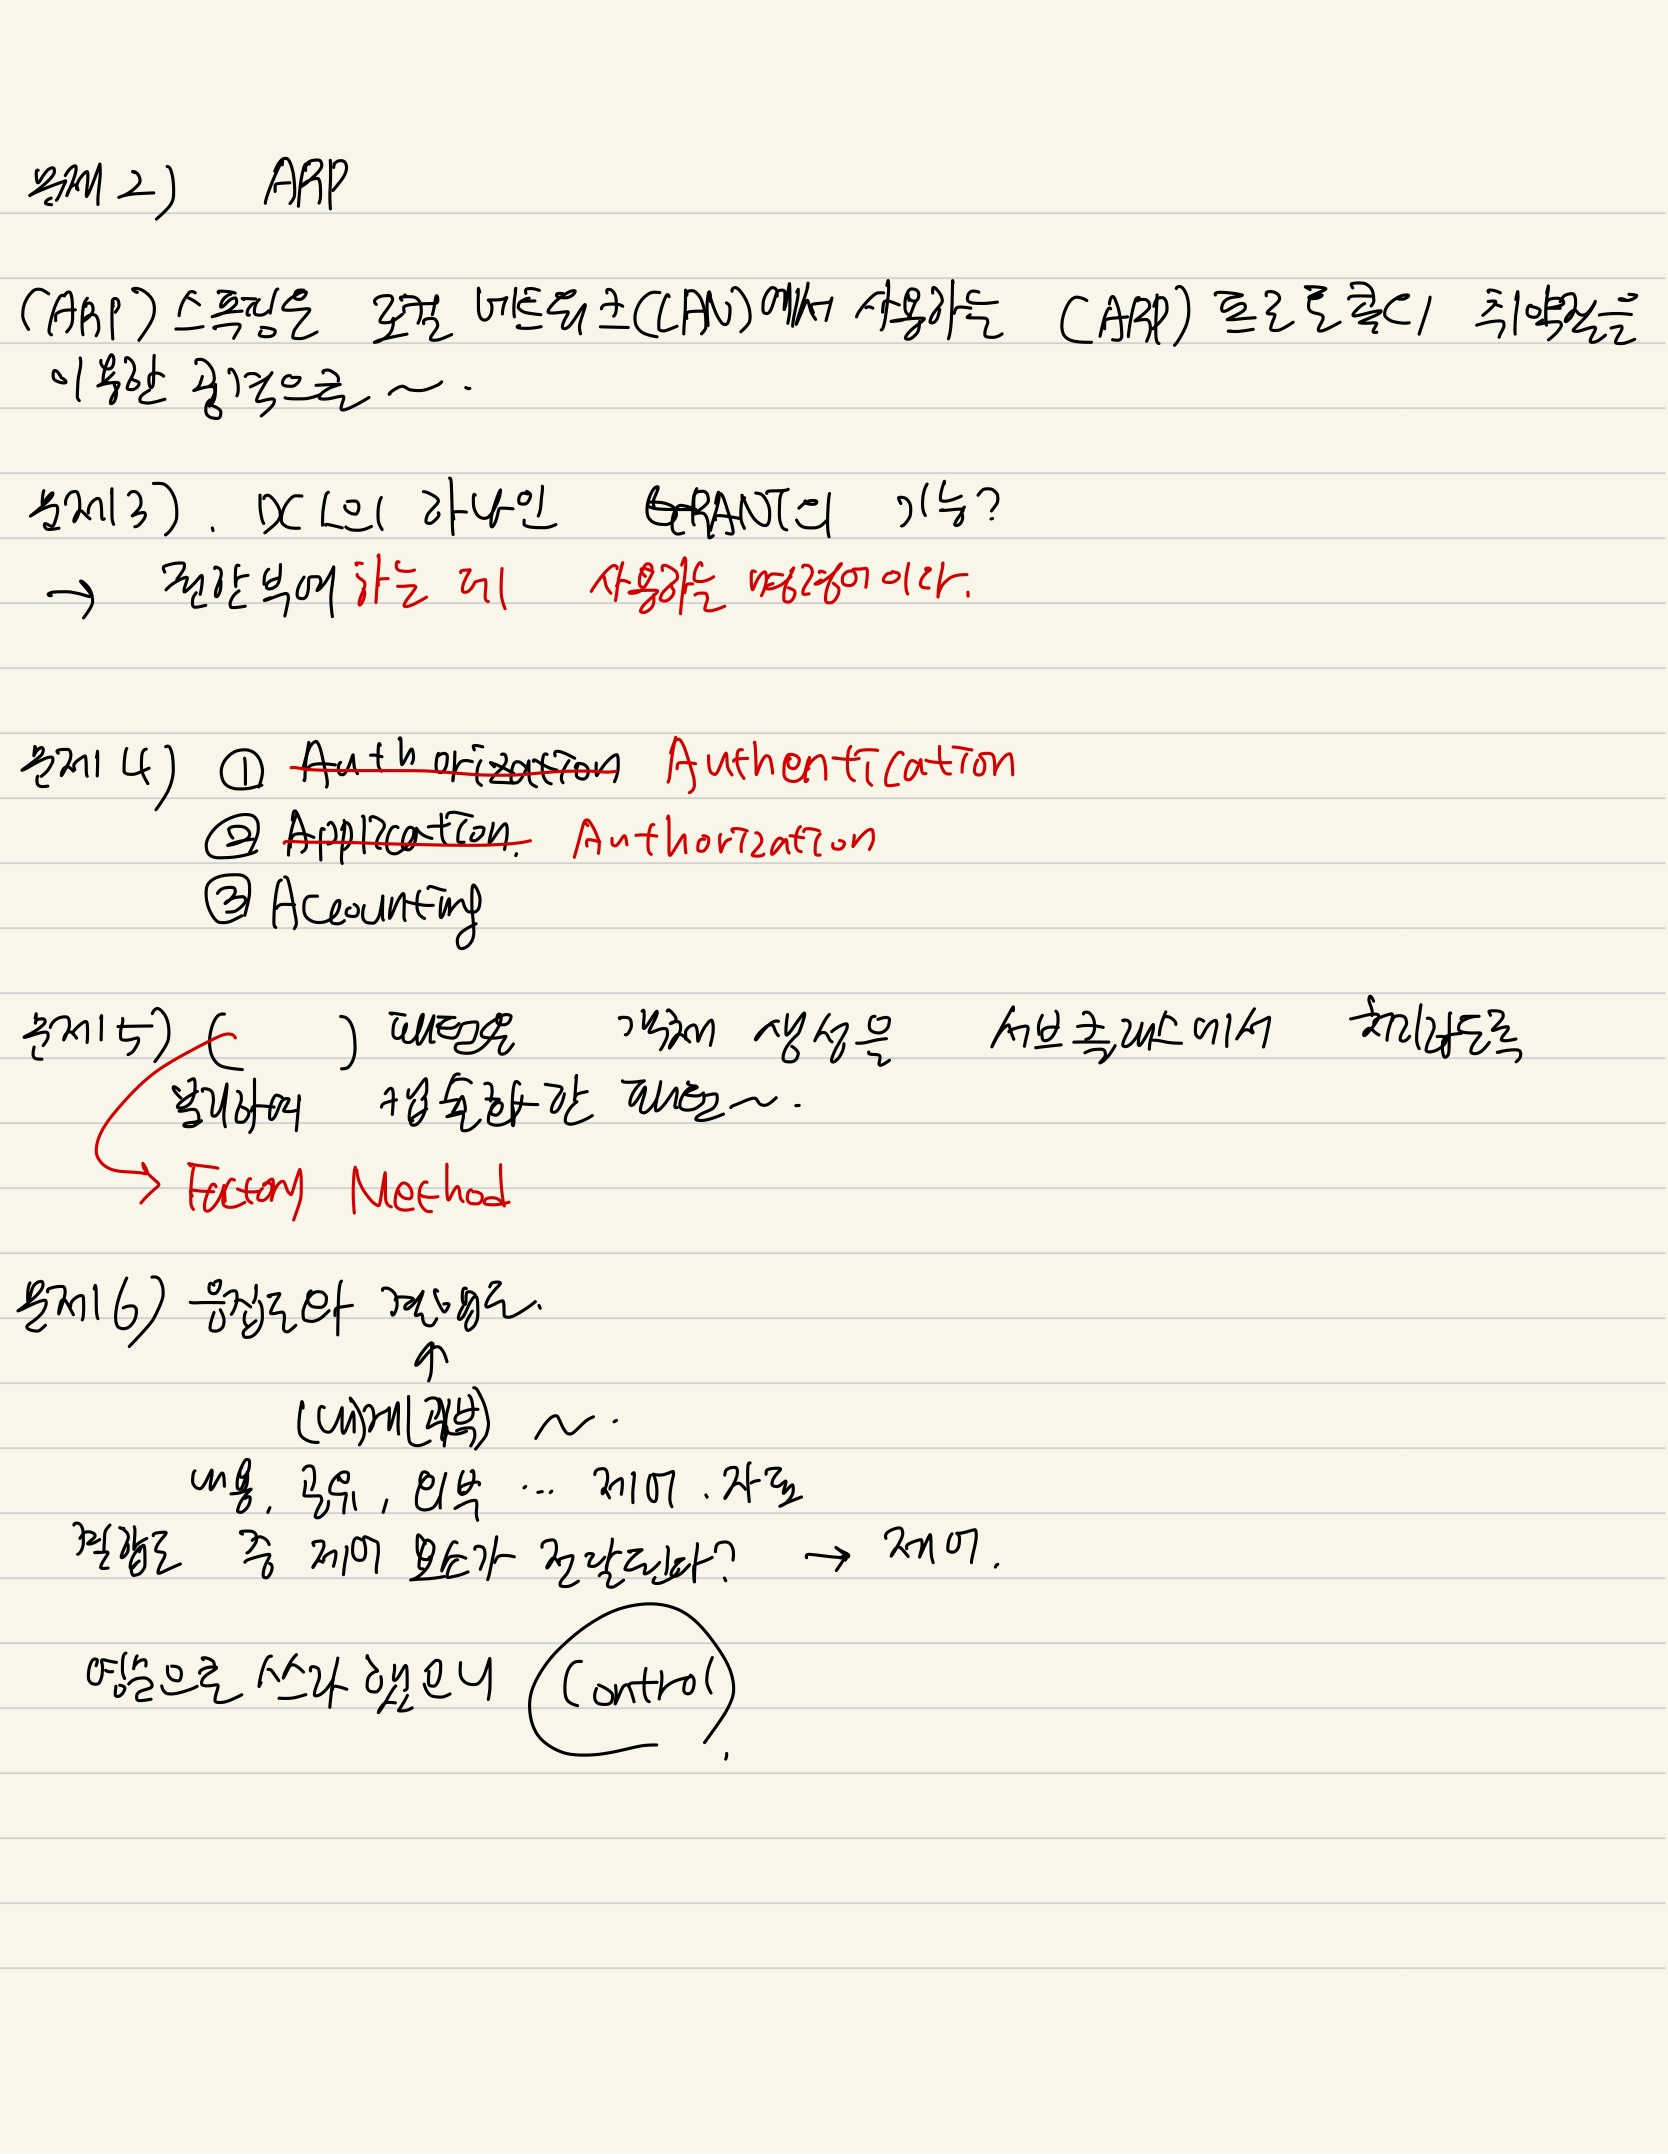 문제 2) ARP
(ARP) 스푸핑은 로컬 네트워크(LAN)에서 사용하는 (ARP) 프로토콜의 취약점을
이용한 공격으로 ~.
문제 3). DCL의 하나인 GRANT의 기능?
→ 권한부여하는 데 사용하는 명령어이다.
문제 4) ① Authorization Authentication
② Application. Authorization
③ Accounting
문제 5) ( ) 패턴은 객체 생성을 서브클래스에서 처리하도록
분리하여 캡슐화한 패턴~.
→ Factory Method
문제 6) 응집도와 결합도.
↑
(내) ~.
내용, 공유, 외부 ... 제어. 자료
결합도 중 제어 요소가 전달된다? → 제어.
영실으로 쓰라 했으니 Control.